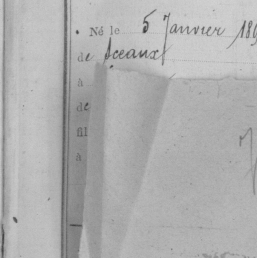 Né le 5 Janvier 189
de Sceaux
à
de
fil
à